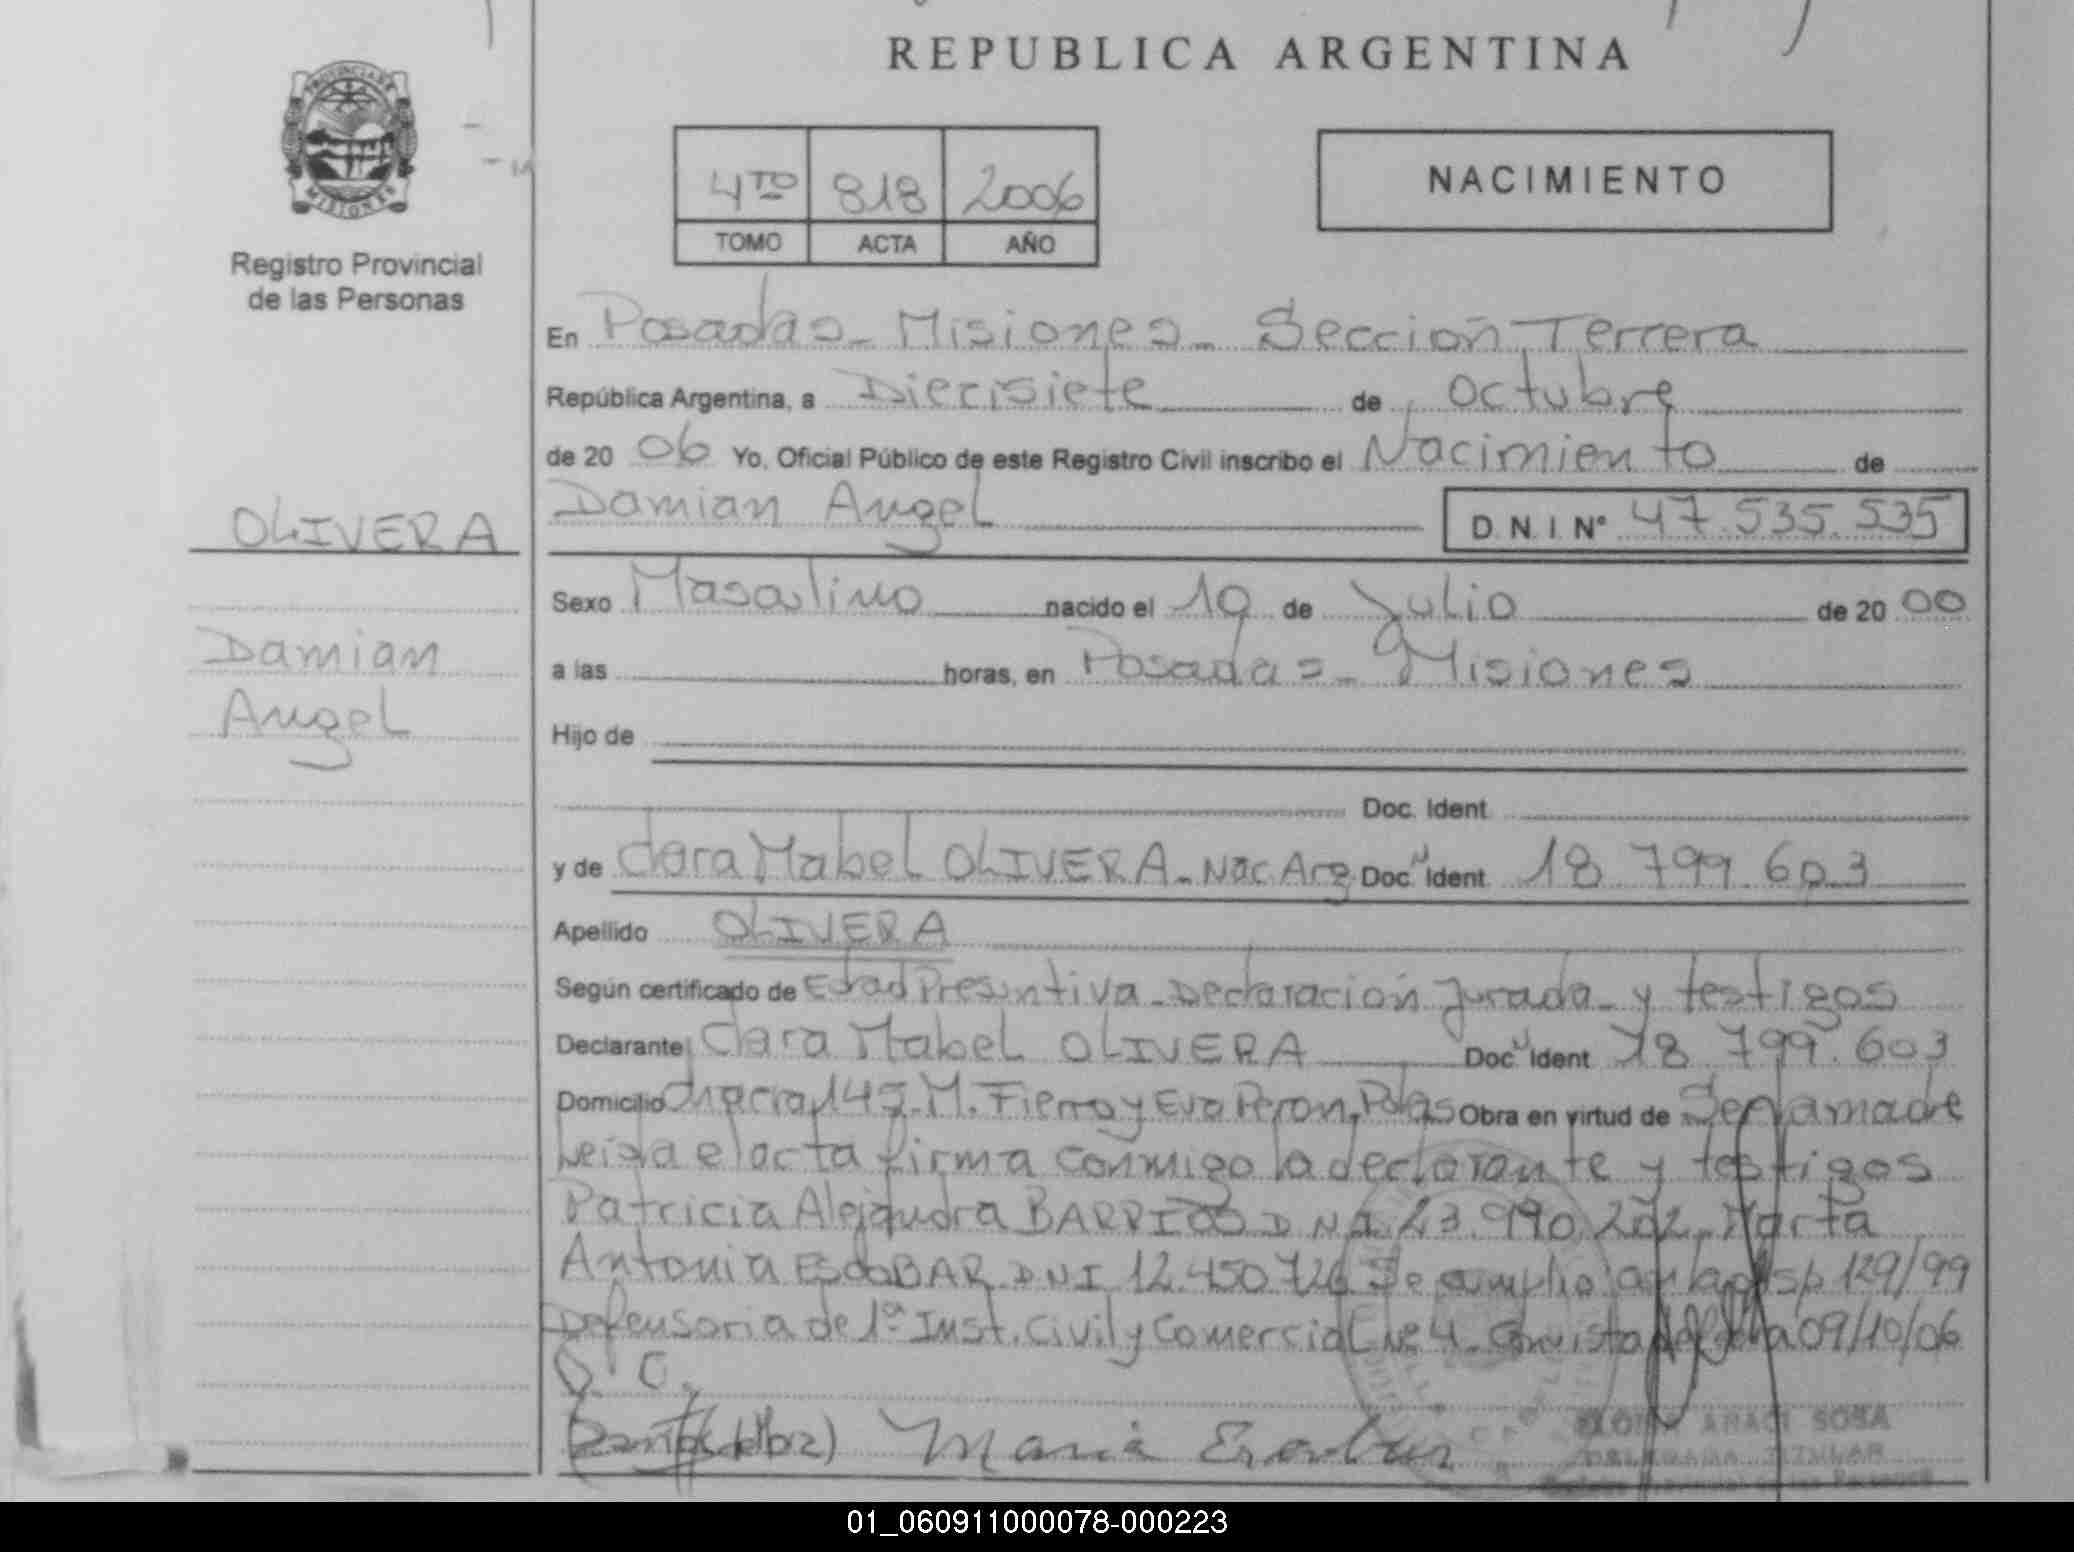 REPUBLICA ARGENTINA
PROVINCIA DE
MISIONES
Registro Provincial
de las Personas
4TO 818 2006
TOMO ACTA AÑO
NACIMIENTO
En Posadas - Misiones - Sección Tercera
República Argentina, a Diecisiete de Octubre
de 20 06 Yo, Oficial Público de este Registro Civil inscribo el Nacimiento de
Damian Angel D.N.I. N° 47.535.535
OLIVERA
Damian
Angel
Sexo Masculino nacido el 19 de Julio de 20 00
a las horas, en Posadas - Misiones
Hijo de
Doc. Ident.
y de Clara Mabel OLIVERA - Nac Arg Doc. Ident. 18.799.603
Apellido OLIVERA
Según certificado de Edad Presuntiva - Declaración Jurada - y testigos
Declarante Clara Mabel OLIVERA Doc. Ident 18.799.603
Domicilio Chacra 145. M. Fierro y Eva Peron, Pdas Obra en virtud de Ser la madre
Leida el acta firma conmigo la declarante y testigos
Patricia Alejandra BARRIOS D.N.I. 23.990.202. Marta
Antonia ESCOBAR DNI 12.450.726 Se cumplio 129/99
Defensoria de 1ª Inst. Civil y Comercial Nº 4. 09/10/06
O. C.
Maria
ARACI SOSA
DELEGADA TITULAR
Registro Provincial de las Personas
01_060911000078-000223